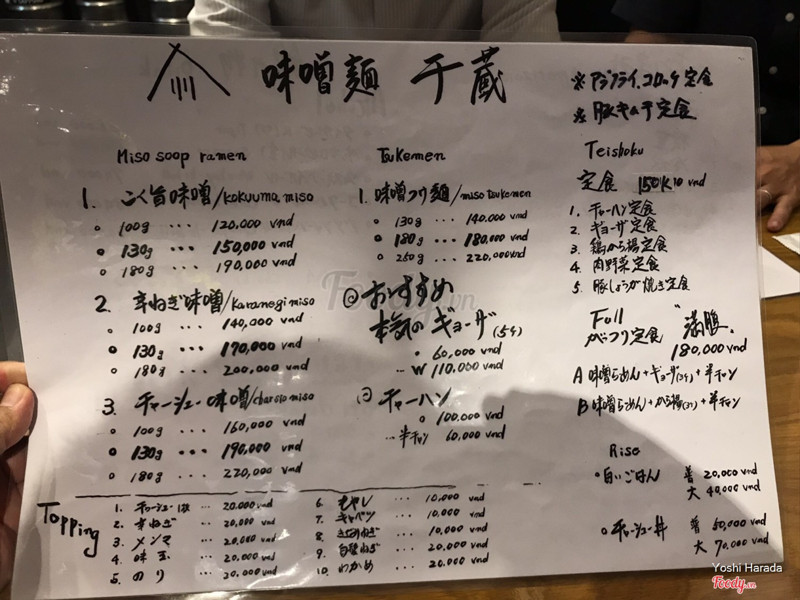 味噌麺 千蔵
※ アジフライ、コロッケ定食
※ 豚キムチ定食
Miso soup ramen
1. こく旨味噌/kokuuma miso
100g ... 120,000 vnd
130g ... 150,000 vnd
180g ... 190,000 vnd
2. 辛ねぎ味噌/Karanegi miso
100g ... 140,000 vnd
130g ... 170,000 vnd
180g ... 200,000 vnd
3. チャーシュー味噌/
100g ... 160,000 vnd
130g ... 190,000 vnd
180g ... 220,000 vnd
Tsukemen
1. 味噌つけ麺/miso tsukemen
130g ... 140,000 vnd
180g ... 180,000 vnd
250g ... 220,000 vnd
おすすめ
本気のギョーザ(5ケ)
60,000 vnd
... W 110,000 vnd
チャーハン
100,000 vnd
... 半チャン 60,000 vnd
Teishoku
定食 150K vnd
1. チャーハン定食
2. ギョーザ定食
3. 鶏から揚定食
4. 肉野菜定食
5. 豚しょうが焼き定食
Full "満腹"
がっつり定食
180,000 vnd
A 味噌らぁめん+ギョーザ(3ケ)+半チャン
B 味噌らぁめん+から揚(3ケ)+半チャン
Rise
白いごはん 普 20,000 vnd
大 40,000 vnd
チャーシュー丼 普 50,000 vnd
大 70,000 vnd
Topping
1. チャーシュー1枚 ... 20,000 vnd
2. 辛ねぎ ... 20,000 vnd
3. メンマ ... 20,000 vnd
4. 味玉 ... 20,000 vnd
5. のり ... 20,000 vnd
6. もやし ... 10,000 vnd
7. キャベツ ... 10,000 vnd
8. きざみねぎ ... 10,000 vnd
9. 白髪ねぎ ... 20,000 vnd
10. わかめ ... 20,000 vnd
Foody.vn
Yoshi Harada
Foody.vn